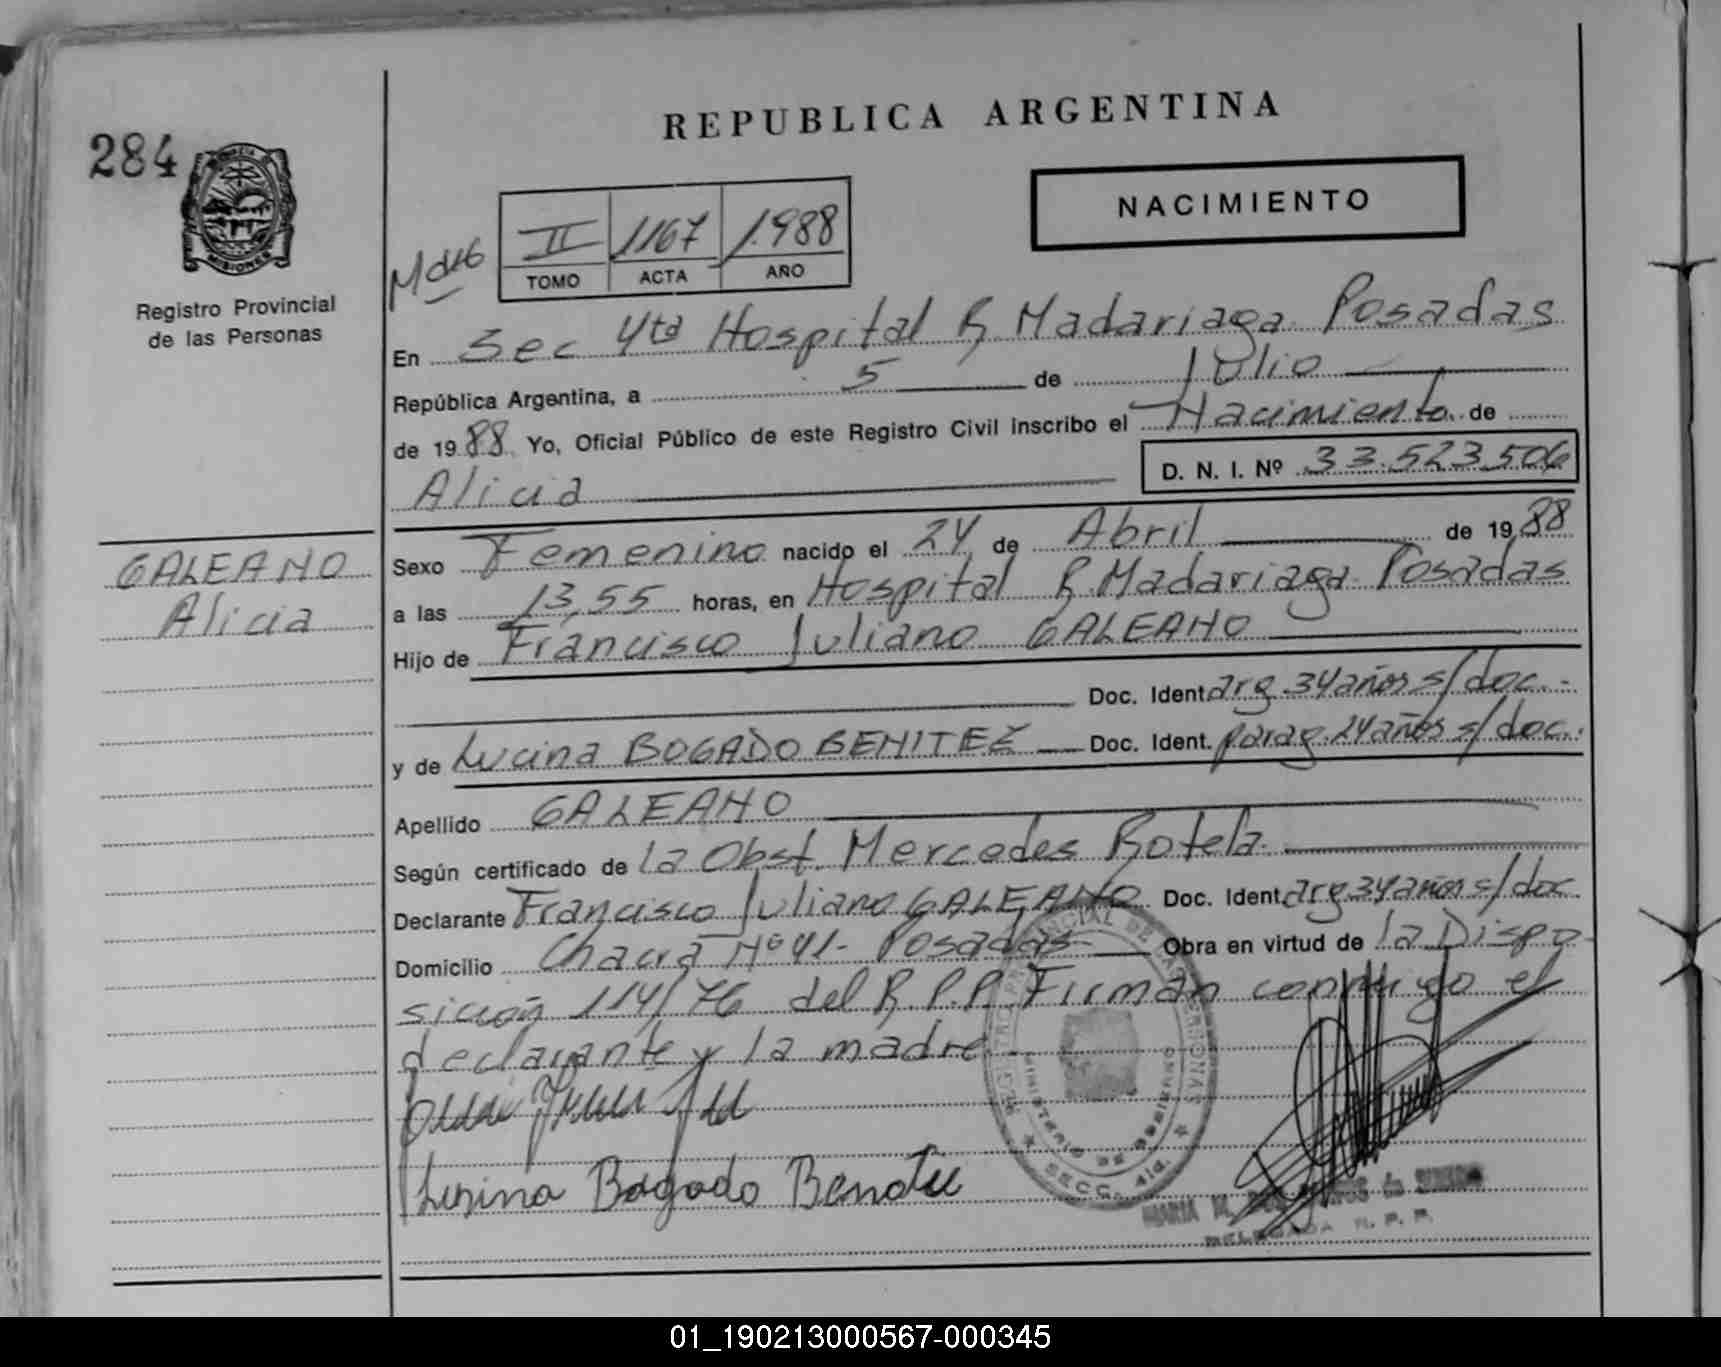 REPUBLICA ARGENTINA
284
NACIMIENTO
II 1167 1.988
TOMO ACTA AÑO
MISIONES
Registro Provincial
de las Personas
En Sec 4ta Hospital R. Madariaga Posadas
República Argentina, a 5 de Julio
de 1988 Yo, Oficial Público de este Registro Civil inscribo el Nacimiento de
D. N. I. Nº 33.523.506
Alicia
GALEANO
Alicia
Sexo Femenino nacido el 24 de Abril de 1988
a las 13,55 horas, en Hospital R. Madariaga Posadas
Hijo de Francisco Juliano GALEANO
Doc. Ident arg. 34 años s/doc.-
y de Lucina BOGADO BENITEZ Doc. Ident. parag. 24 años s/doc.
Apellido GALEANO
Según certificado de la Obst. Mercedes Rotela.
Declarante Francisco Juliano GALEANO Doc. Ident arg 34 años s/doc
Domicilio Chacra Nº 41- Posadas- Obra en virtud de la Dispo-
sición 114/76 del R.P.P. Firman conmigo el
declarante y la madre.
REGISTRO PROVINCIAL DE LAS PERSONAS
MINISTERIO DE GOBIERNO
SECC. 4ta.
MARIA M.
DELEGADA R. P. P.
01_190213000567-000345